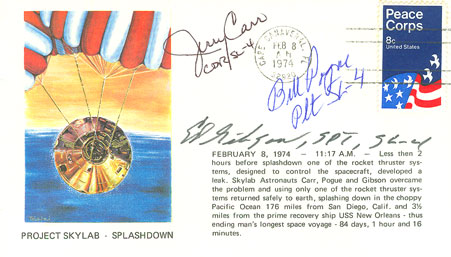 Jerry Carr
CDR/SL-4
CAPE CANAVERAL, FL
FEB 8
1974
Peace
Corps
8c
United States
Bill Pogue
Plt SL-4
Ed Gibson, SPT,
FEBRUARY 8, 1974 — 11:17 A.M. — Less then 2
hours before splashdown one of the rocket thruster sys-
tems, designed to control the spacecraft, developed a
leak. Skylab Astronauts Carr, Pogue and Gibson overcame
the problem and using only one of the rocket thruster sys-
tems returned safely to earth, splashing down in the choppy
Pacific Ocean 176 miles from San Diego, Calif. and 3½
miles from the prime recovery ship USS New Orleans - thus
ending man's longest space voyage - 84 days, 1 hour and 16
minutes.
PROJECT SKYLAB - SPLASHDOWN